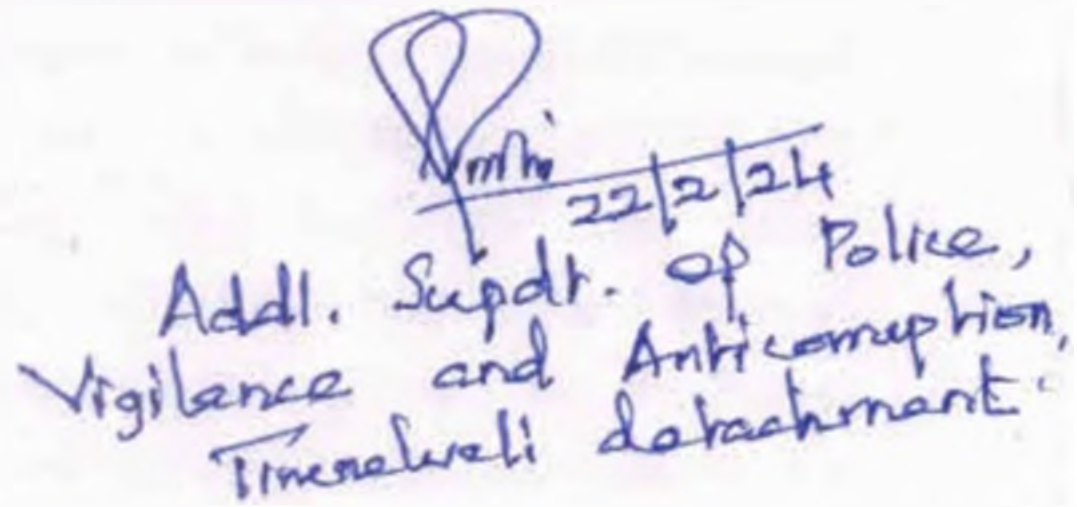 22/2/24
Addl. Supdt. of Police,
Vigilance and Anticorruption,
Tirunelveli detachment.